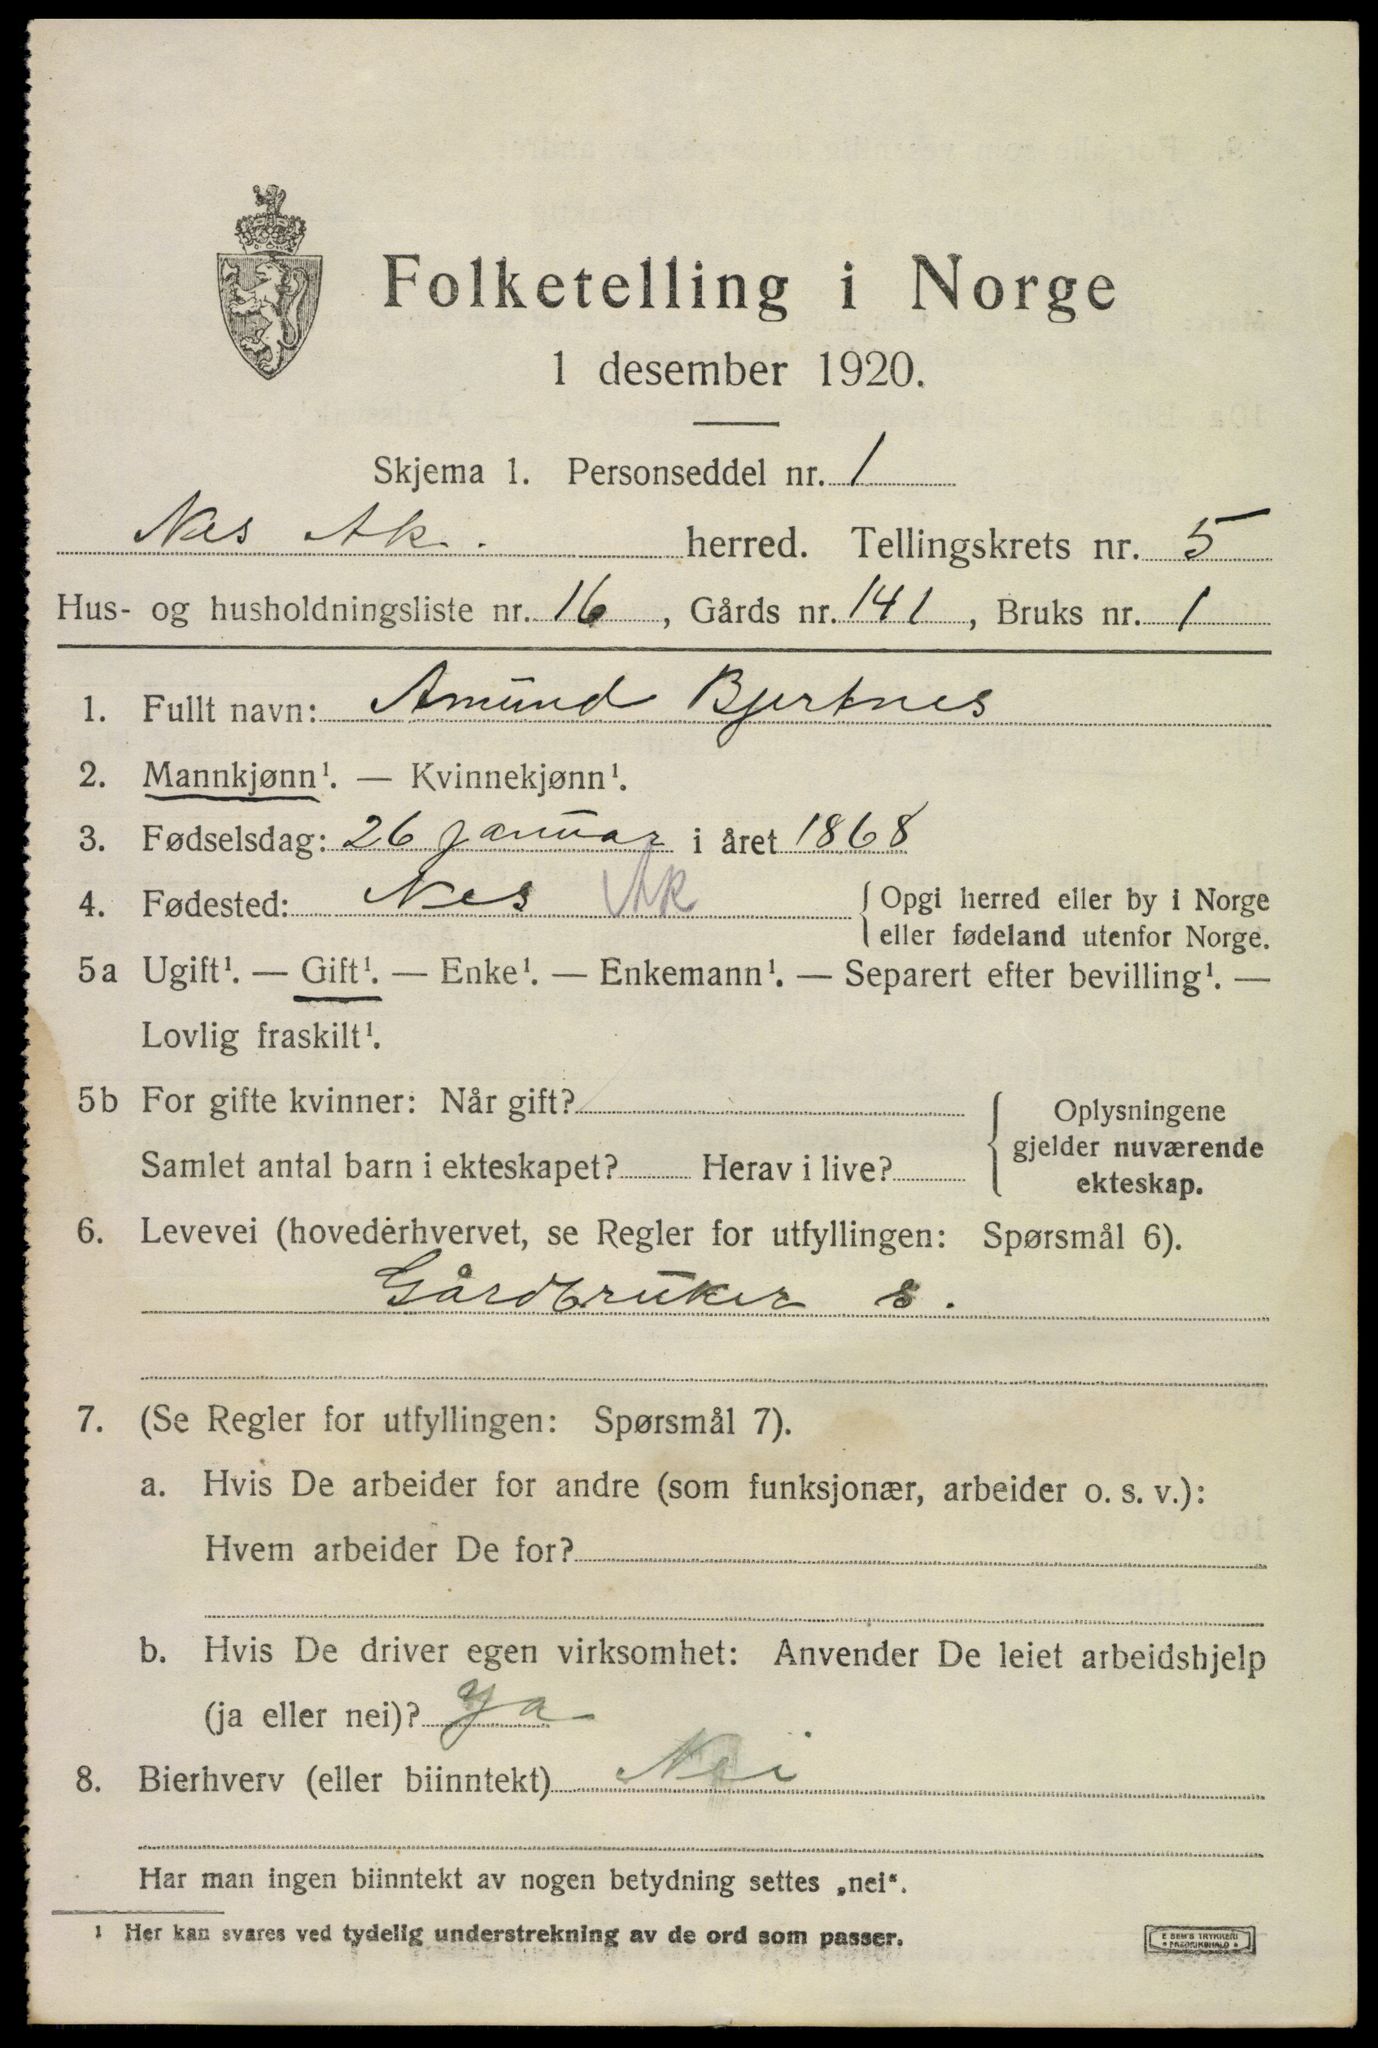 Folketelling i Norge
1 desember 1920.
Skjema 1. Personseddel nr. 1
Nes Ak. herred. Tellingskrets nr. 5
Hus- og husholdningsliste nr. 16, Gårds nr. 141, Bruks nr. 1
1. Fullt navn: Amund Bjertnes
2. Mannkjønn¹. — Kvinnekjønn¹.
3. Fødselsdag: 26 januar i året 1868
4. Fødested: Nes Ak { Opgi herred eller by i Norge
eller fødeland utenfor Norge.
5a Ugift¹. — Gift¹. — Enke¹. — Enkemann¹. — Separert efter bevilling¹. —
Lovlig fraskilt¹.
5b For gifte kvinner: Når gift?
Samlet antal barn i ekteskapet? Herav i live?
{ Oplysningene
gjelder nuværende
ekteskap.
6. Levevei (hovederhvervet, se Regler for utfyllingen: Spørsmål 6).
Gårdbruker s.
7. (Se Regler for utfyllingen: Spørsmål 7).
a. Hvis De arbeider for andre (som funksjonær, arbeider o. s. v.):
Hvem arbeider De for?
b. Hvis De driver egen virksomhet: Anvender De leiet arbeidshjelp
(ja eller nei)? Ja
8. Bierhverv (eller biinntekt) Nei
Har man ingen biinntekt av nogen betydning settes „nei“.
¹ Her kan svares ved tydelig understrekning av de ord som passer.
E SEM'S TRYKKERI
* FREDRIKSHALD *